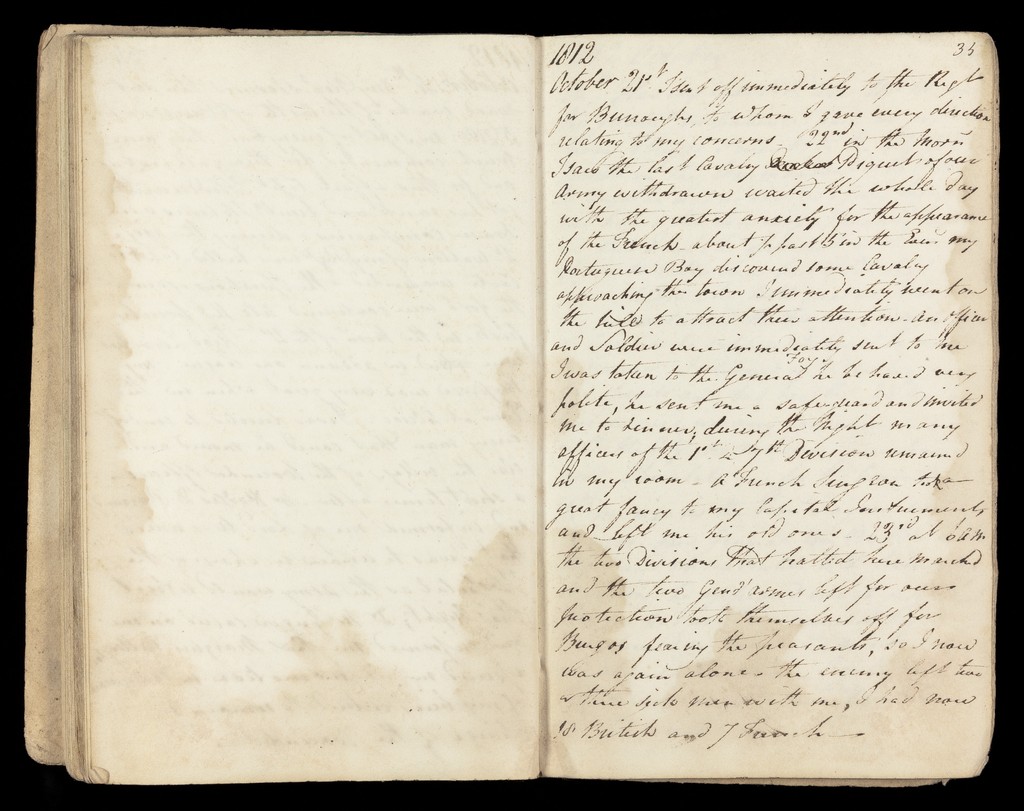 1812
35
October 21st I sent off immediately to the Regt
for Burroughs, to whom I gave every direction
relating to my concerns. 22nd in the Morng
I saw the last Cavalry Piquet of our
Army withdrawn waited the whole day
with the greatest anxiety for the appearance
of the French - about ½ past 5 in the Eveng my
Portuguese Boy discovered some Cavalry
approaching the town I immediately went on
the hill to attract their attention - an officer
and Soldier were immediately sent to me
Foy
I was taken to the General he behaved very
polite, he sent me a safe guard and invited
me to dinner, during the Night many
officers of the 1st & 7th Division remained
in my room - a French Surgeon took a
great fancy to my Capital Instruments
and left me his old ones - 23rd at 6 am
the two Divisions that halted here marched
and the two Gend'armes left for our
protection took themselves off for
Burgos fearing the peasants, so I now
was again alone - the enemy left two
or three sick men with me, I had now
18 British and 7 French